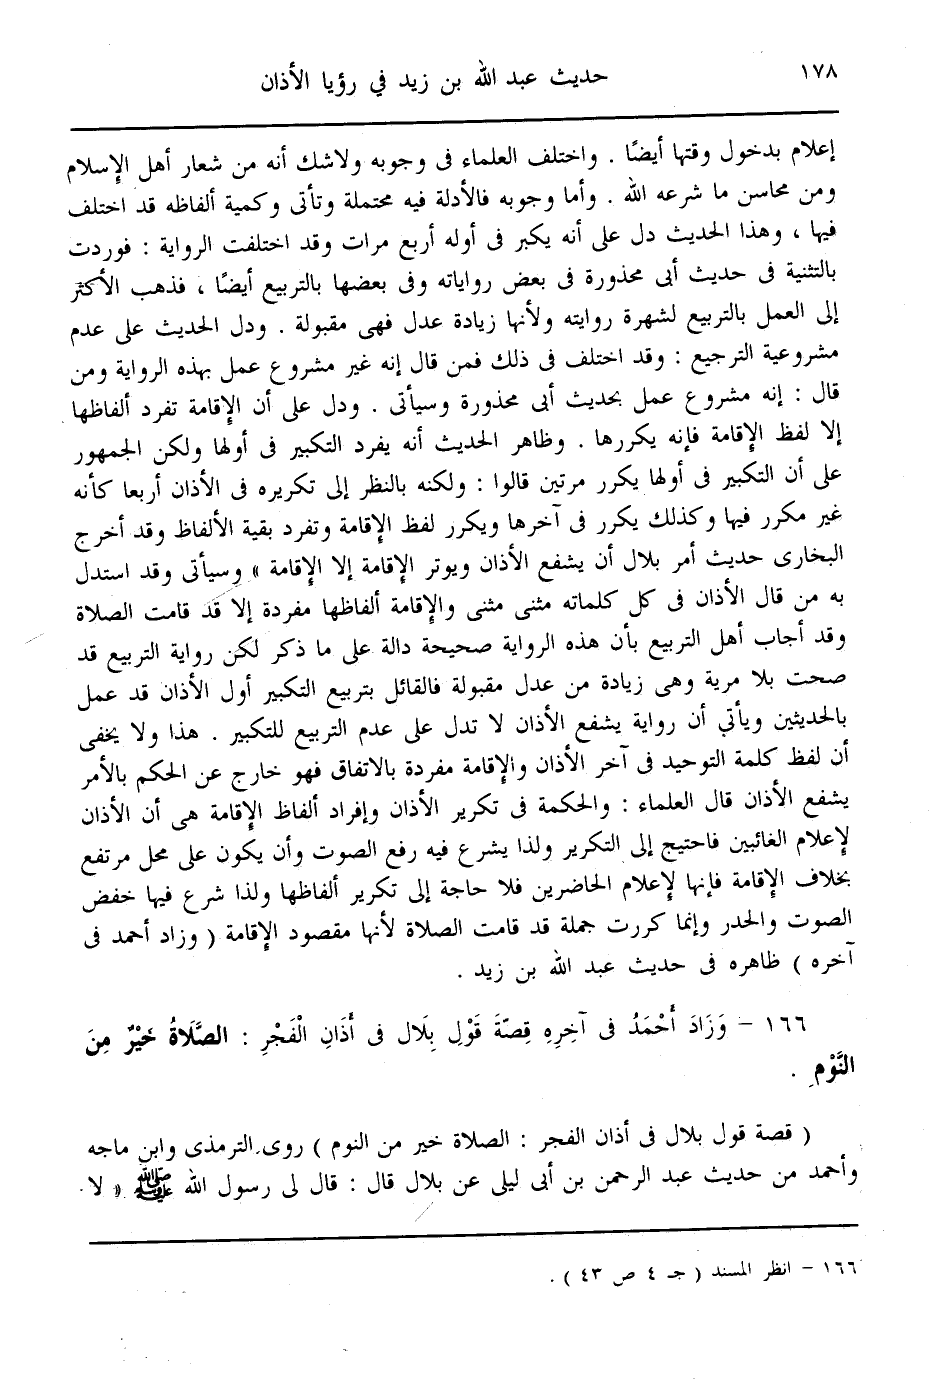 ١٧٨
حديث عبد الله بن زيد في رؤيا الأذان
إعلام بدخول وقتها أيضًا . واختلف العلماء فى وجوبه ولاشك أنه من شعار أهل الإسلام
ومن محاسن ما شرعه الله . وأما وجوبه فالأدلة فيه محتملة وتأتى وكمية ألفاظه قد اختلف
فيها ، وهذا الحديث دل على أنه يكبر فى أوله أربع مرات وقد اختلفت الرواية : فوردت
بالتثنية فى حديث أبى محذورة فى بعض رواياته وفى بعضها بالتربيع أيضًا ، فذهب الأكثر
إلى العمل بالتربيع لشهرة روايته ولأنها زيادة عدل فهى مقبولة . ودل الحديث على عدم
مشروعية الترجيع : وقد اختلف فى ذلك فمن قال إنه غير مشروع عمل بهذه الرواية ومن
قال : إنه مشروع عمل بحديث أبى محذورة وسيأتى . ودل على أن الإقامة تفرد ألفاظها
إلا لفظ الإقامة فإنه يكررها . وظاهر الحديث أنه يفرد التكبير فى أولها ولكن الجمهور
على أن التكبير فى أولها يكرر مرتين قالوا : ولكنه بالنظر إلى تكريره فى الأذان أربعا كأنه
غير مكرر فيها وكذلك يكرر فى آخرها ويكرر لفظ الإقامة وتفرد بقية الألفاظ وقد أخرج
البخارى حديث أمر بلال أن يشفع الأذان ويوتر الإقامة إلا الإقامة » وسيأتى وقد استدل
به من قال الأذان فى كل كلماته مثنى مثنى والإقامة ألفاظها مفردة إلا قد قامت الصلاة
وقد أجاب أهل التربيع بأن هذه الرواية صحيحة دالة على ما ذكر لكن رواية التربيع قد
صحت بلا مرية وهى زيادة من عدل مقبولة فالقائل بتربيع التكبير أول الأذان قد عمل
بالحديثين ويأتي أن رواية يشفع الأذان لا تدل على عدم التربيع للتكبير . هذا ولا يخفى
أن لفظ كلمة التوحيد فى آخر الأذان والإقامة مفردة بالاتفاق فهو خارج عن الحكم بالأمر
يشفع الأذان قال العلماء : والحكمة فى تكرير الأذان وإفراد ألفاظ الإقامة هى أن الأذان
لإعلام الغائبين فاحتيج إلى التكرير ولذا يشرع فيه رفع الصوت وأن يكون على محل مرتفع
بخلاف الإقامة فإنها لإعلام الحاضرين فلا حاجة إلى تكرير ألفاظها ولذا شرع فيها خفض
الصوت والحدر وإنما كررت جملة قد قامت الصلاة لأنها مقصود الإقامة ( وزاد أحمد فى
آخره ) ظاهره فى حديث عبد الله بن زيد .
١٦٦ - وَزَادَ أَحْمَدُ فى آخِرِهِ قِصّةَ قَوْلِ بِلَال فى أَذَانِ الْفَجْرِ : الصَّلَاةُ خَيْرٌ مِنَ
النَّوْمِ .
( قصة قول بلال فى أذان الفجر : الصلاة خير من النوم ) روى الترمذى وابن ماجه
وأحمد من حديث عبد الرحمن بن أبى ليلى عن بلال قال : قال لى رسول الله ﷺ « لا
١٦٦ - انظر المسند ( جـ ٤ ص ٤٣ ) .